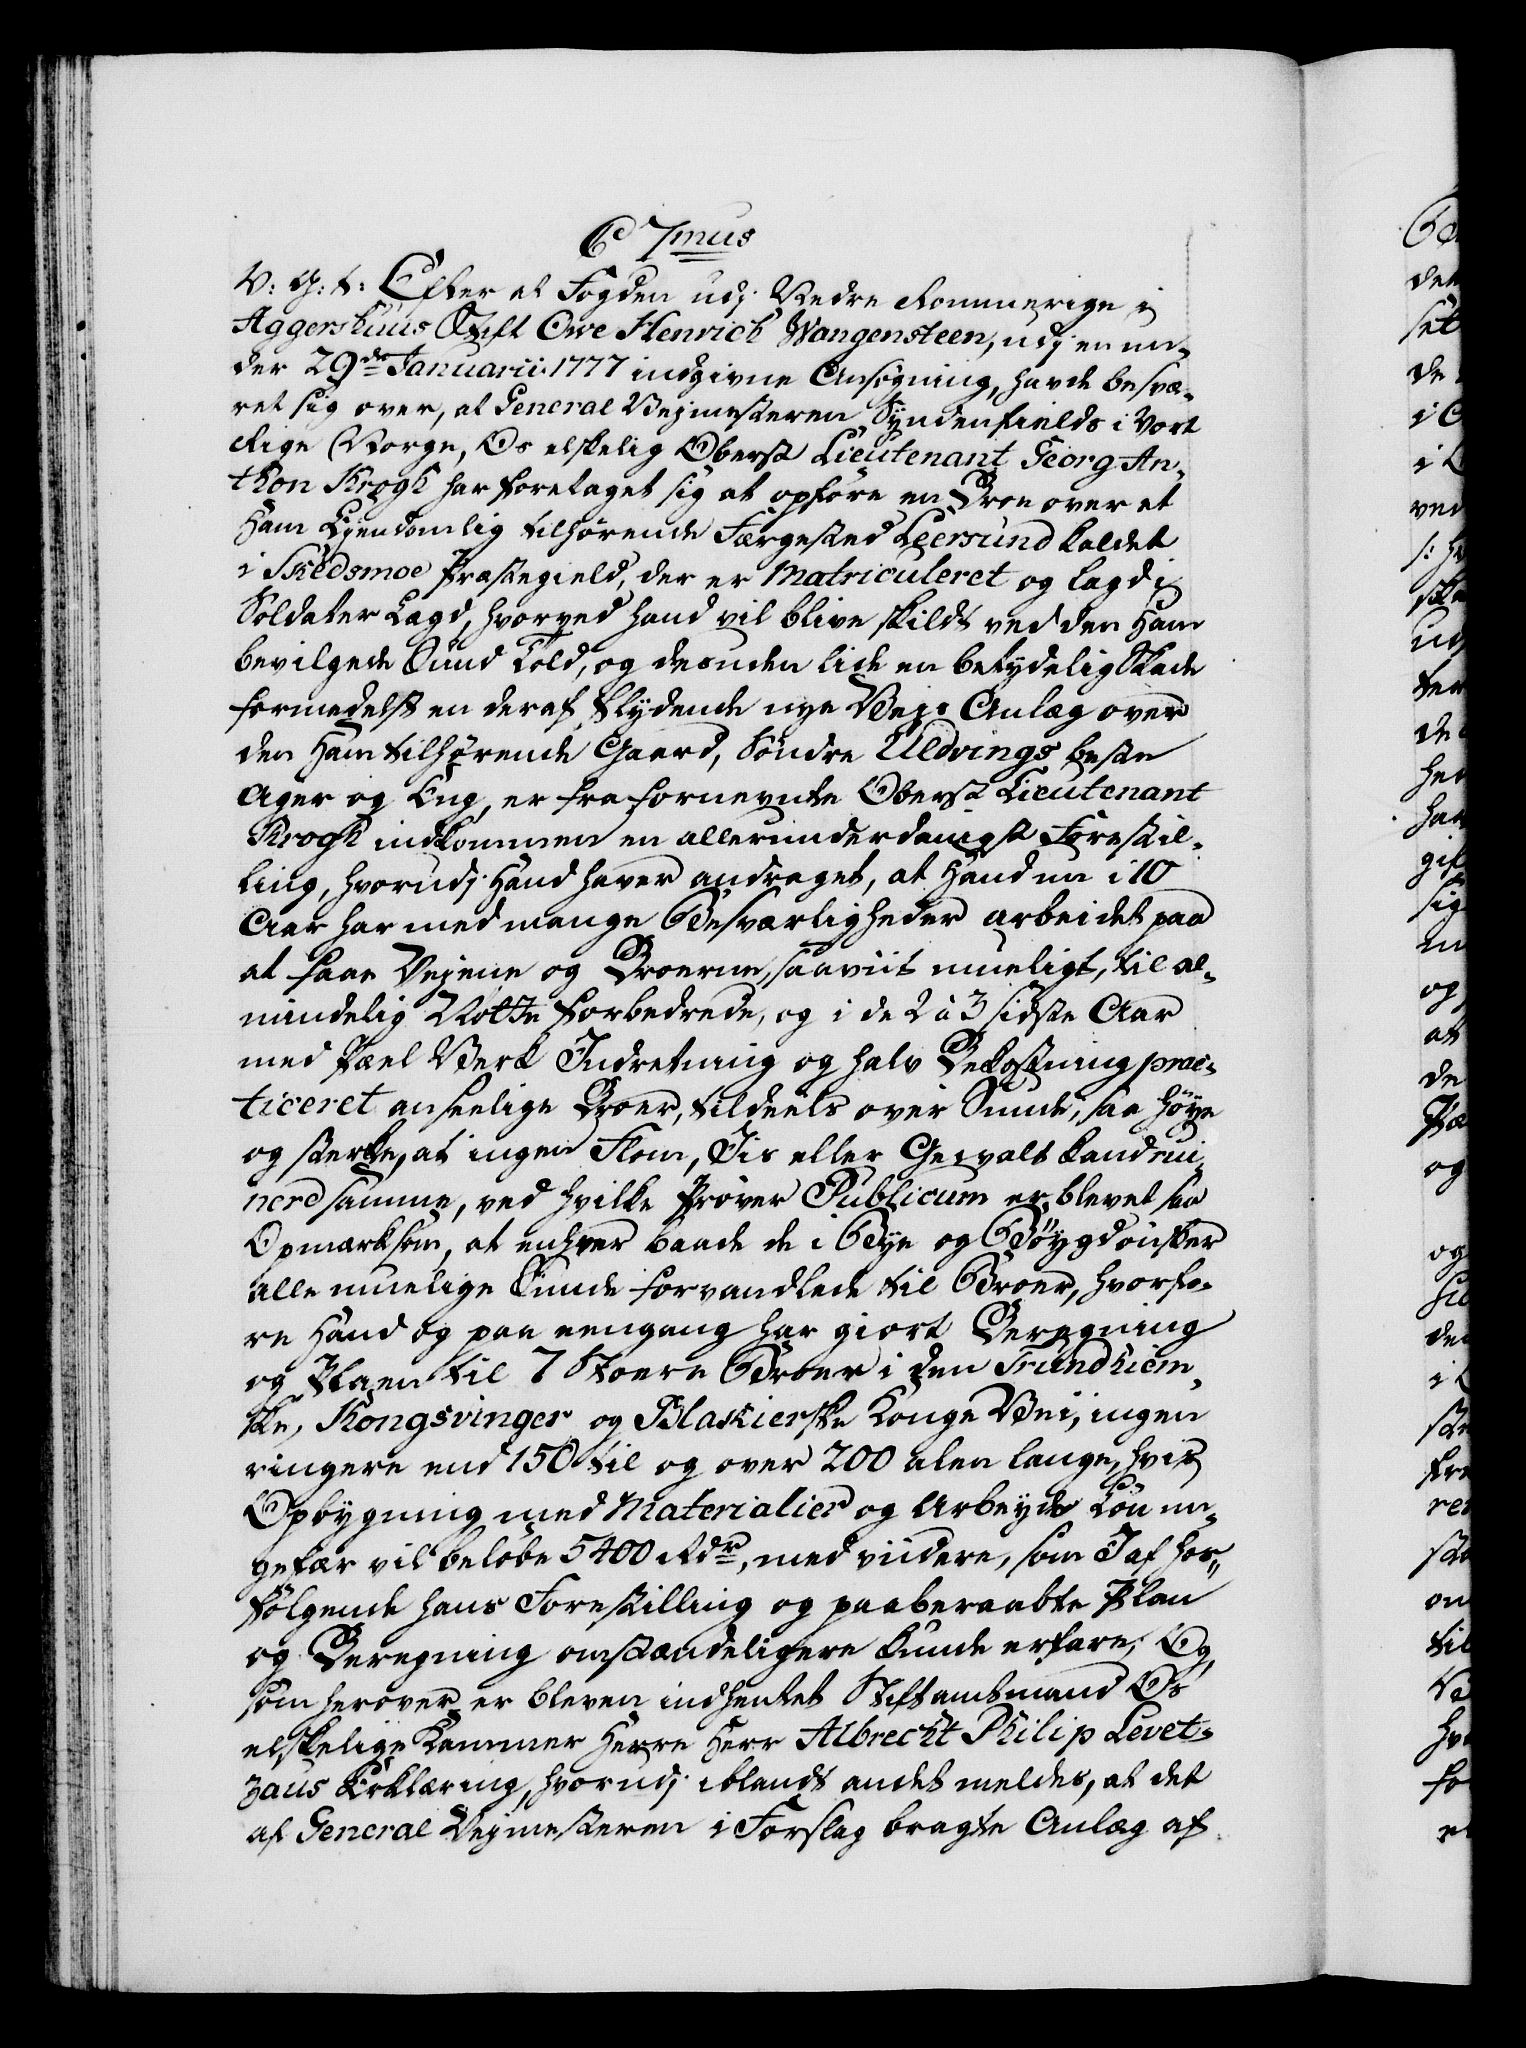 C 7mus
V: G: T: Efter at Fogden udj Nedre Rommerige i
Aggershuus Stift Owe Henrich Wangensteen, udj en un-
der 29de Januarii 1777 indgivne Ansøgning, havde besvæ-
ret sig over, at General Vejmesteren Syndenfields i Vort
Rige Norge, Os elskelig Oberst Lieutenant Georg An-
thon Krogh har foretaget sig at opføre en Broe over et
Ham Eyendomlig tilhørende Færgested Leersund kaldet
i Skedsmoe Præstegield, der er Matriculeret og lagd i
Soldater Lægd, hvorved hand vil blive skildt ved den Ham
bevilgede Sund Told, og desuden lide en betydelig Skade
formedelst en deraf flydende nye Veys Anlæg over
den Ham tilhørende Gaard, Søndre Uldvings beste
Ager og Eng, er fra fornevnte Oberst Lieutenant
Krogh indkommen en allerunderdanigst Forestil-
ling, hvorudj Hand haver andraget, at Hand nu i 10
Aar har med mange Besværligheder arbeidet paa
at faae Vejene og Broerne, saaviit mueligt, til al-
mindelig Nøtte forbedrede, og i de 2 á 3 sidste Aar
med Pæl Verk Indretning og halv Bekostning prac-
ticeret anseelige Broer, tildeels over Sunde, saa høye
og sterke, at ingen Flom, Iis eller Gewalt kand rui-
nere samme, ved hvilke Prøver Publicum er blevet saa
Opmærksom, at enhver baade de i Bye og Bøygd ønsker
alle muelige Sunde forvandlede til Broer, hvorfo-
re Hand og paa eengang har giort Beregning
og Plaen til 7 Stoere Broer i den Trundhiem-
ske, Kongsvinger og Blakierske Konge Vei, ingen
ringere end 150 til og over 200 alen lange, hvis
Opbygning med Materialier og Arbeyds Løn un-
gefær vil beløbe 5400 Rdr, med viidere, som I af hos-
følgende hans Forestilling og paaberaabte Plan
og Beregning omstændeligere kunde erfare; Og
som herover er bleven indhentet Stiftamtmand Os
elskelige Kammer Herre Herr Albrecht Philip Levet-
zaus Erklæring, hvorudj iblandt andet meldes, at det
af General Vejmesteren i Forslag bragte Anlæg af